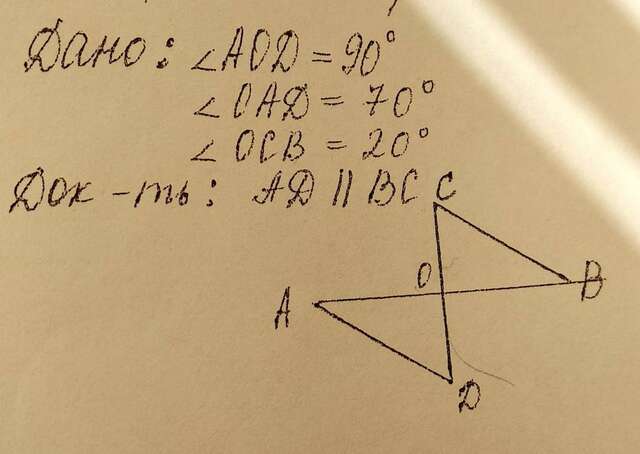 Дано: ∠AOD = 90°
∠OAD = 70°
∠OCB = 20°
Док-ть: AD || BC
C
O
B
A
D